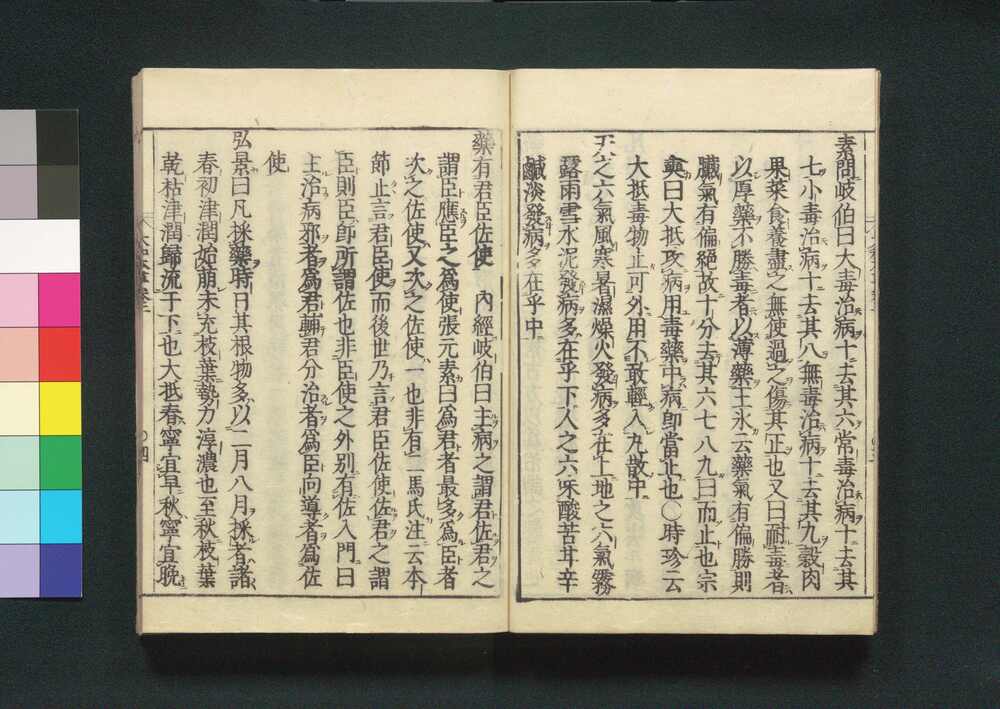 素問岐伯曰大毒治病十去其六常毒治病十去其
七小毒治病十去其八無毒治病十去其九穀肉
果菜食養盡之無使過之傷其正也又曰耐毒者
以厚藥不勝毒者以薄藥王氷云藥氣有偏勝則
臟氣有偏絕故十分去其六七八九曰而止也宗
奭曰大抵攻病用毒藥中病卽當止也〇時珍云
大抵毒物止可外用不敢輕入丸散中
天之六氣風寒暑濕燥火發病多在上地之六氣霧
露雨雪水泥發病多在乎下人之六味酸苦甘辛
鹹淡發病多在乎中
藥有君臣佐使 內經岐伯曰主病之謂君佐君之
謂臣應臣之爲使張元素曰爲君者最多爲臣者
次之佐使又次之佐使一也非有二馬氏注云本
節止言君臣使而後世乃言君臣佐使佐君之謂
臣則臣卽所謂佐也非臣使之外別有佐入門曰
主治病邪者爲君輔君分治者爲臣向導者爲佐
使
弘景曰凡採藥時日其根物多以二月八月採者諸
春初津潤始萌未充枝葉勢力淳濃也至秋枝葉
乾枯津潤歸流于下也大抵春寧宜早秋寧宜晚